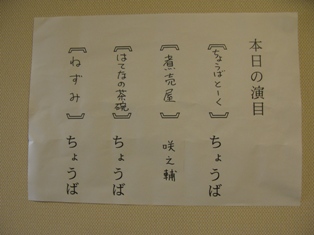 本日の演目
【ちょうばとーく】ちょうば
【煮売屋】咲之輔
【はてなの茶碗】ちょうば
【ねずみ】ちょうば